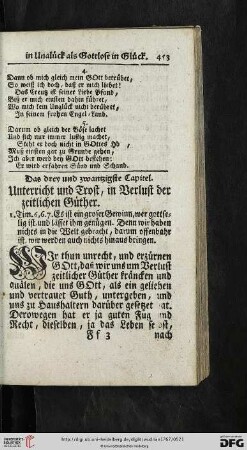 in Unglück als Gottlose in Glück. 453
4.
Dann ob mich gleich mein GOtt betrübet,
So weiß ich doch, daß er mich liebet!
Das Creutz ist seiner Liebe Pfand,
Biß er mich einsten dahin führet,
Wo mich kein Unglück nicht berühret,
In seinem frohen Engel-Land.
5.
Darum ob gleich der Böse lachet
Und sich nur immer lustig machet,
Steht er doch nicht in GOttes
Muß einsten gar zu Grunde gehen,
Ich aber werd bey GOtt bestehen:
Er wird erfahren Sünd und Schand.
Das drey und zwantzigste Capitel.
Unterricht und Trost, in Verlust der
zeitlichen Güther.
1. Tim. 6,6.7. Es ist ein grosser Gewinn, wer gottse-
lig ist, und lässet ihm genügen. Denn wir haben
nichts in die Welt gebracht, darum offenbahr
ist, wir werden auch nichts hinaus bringen.
WIr thun unrecht, und erzürnen
GOtt, das wir uns um Verlust
zeitlicher Güther kräncken und
quälen, die uns GOtt, als ein geliehen
und vertrauet Guth, untergeben, und
uns zu Haushaltern darüber gesetzet
Derowegen hat er ja guten Fug und
Recht, dieselben, ja das Leben
Ff 3 nach
DFG